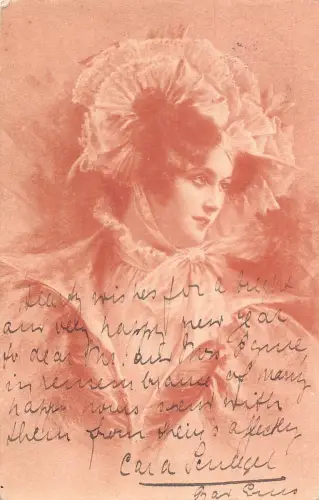 hearty wishes for a bright
and very happy new year
to dear Mr. and Mrs
in remembrance of many
happy hours spent with
them from theirs affectly
Cara